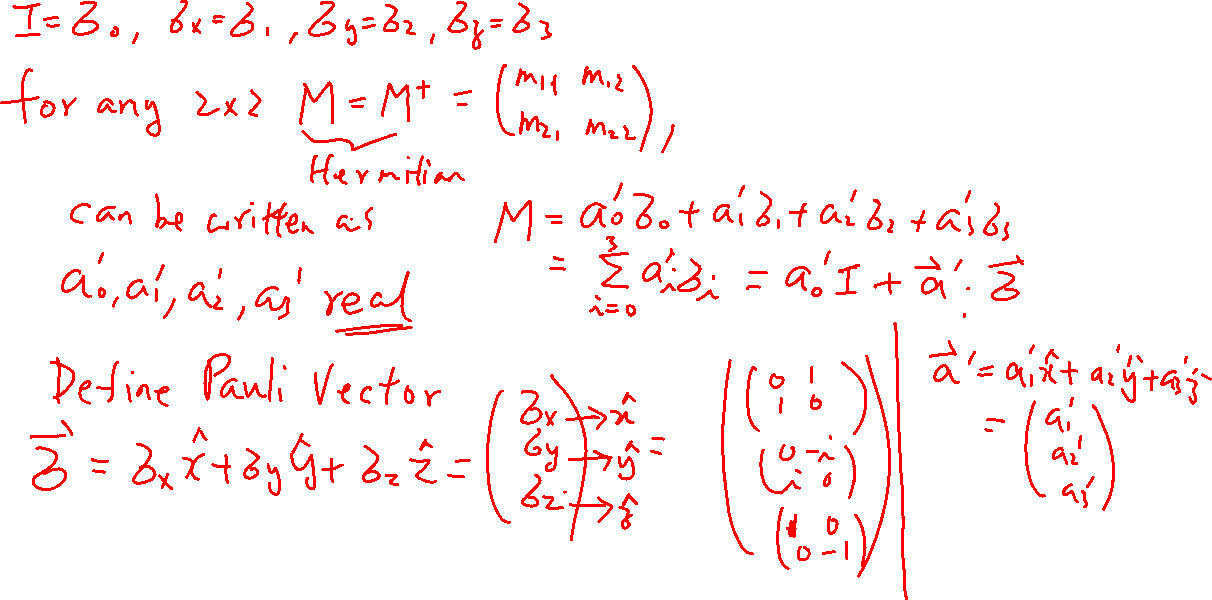 I = σ₀, σx = σ₁, σy = σ₂, σz = σ₃
for any 2×2 M = M⁺ = (m₁₁ m₁₂
m₂₁ m₂₂),
Hermitian
can be written as M = a₀'σ₀ + a₁'σ₁ + a₂'σ₂ + a₃'σ₃
a₀', a₁', a₂', a₃' real = Σ_{i=0}^{3} aᵢ'σᵢ = a₀'I + a⃗'·σ⃗
Define Pauli Vector
σ⃗ = σx x̂ + σy ŷ + σz ẑ = (σx → x̂
σy → ŷ
σz → ẑ) =
((0 1
1 0)
(0 -i
i 0)
(1 0
0 -1))
a⃗' = a₁'x̂ + a₂'ŷ + a₃'ẑ
= (a₁'
a₂'
a₃')